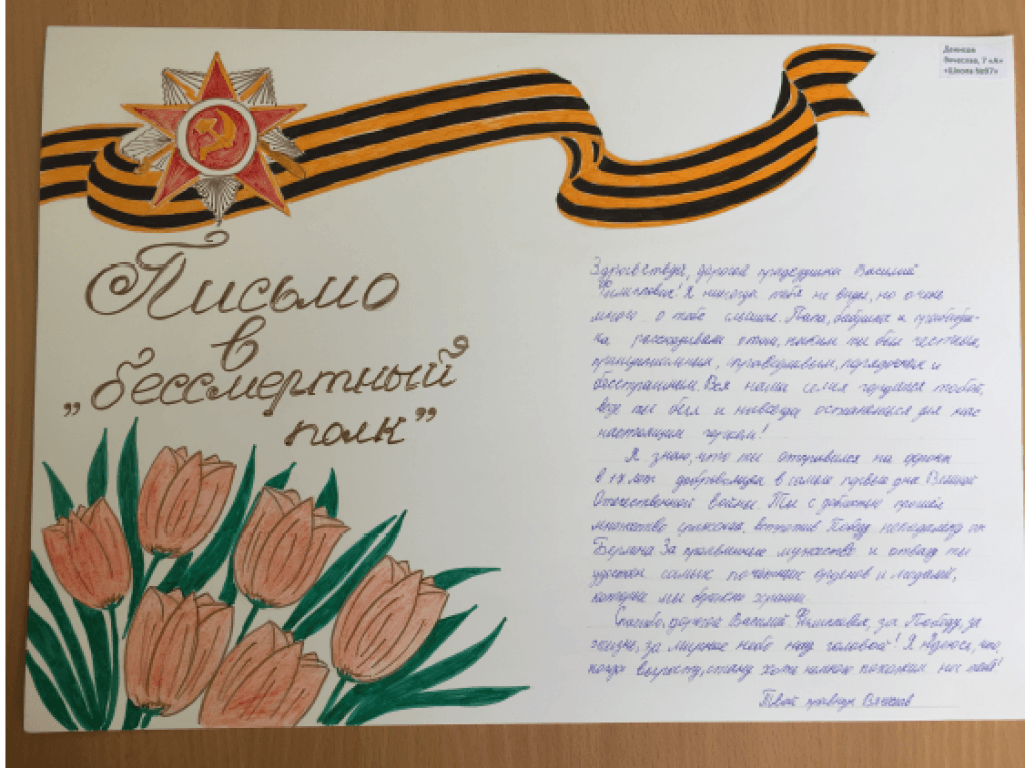 Вячеслав, 7 «А»
«Школа №97»
Письмо
в
„бессмертный
полк”
Здравствуй, дорогой прадедушка Василий
! Я никогда тебя не видел, но очень
много о тебе слышал. Папа, бабушка и прабабуш-
ка рассказывали мне, каким ты был честным,
принципиальным, справедливым, порядочным и
бесстрашным. Вся наша семья гордится тобой,
ведь ты был и навсегда останешься для нас
настоящим героем!
Я знаю, что ты отправился на фронт
в 17 лет добровольцем в самые первые дни Великой
Отечественной войны. Ты с доблестью прошёл
множество сражений, встретив Победу неподалёку от
Берлина. За проявленные мужество и отвагу ты
удостоен самых почётных орденов и медалей,
которые мы бережно храним.
Спасибо, дорогой Василий за Победу, за
жизнь, за мирное небо над головой! Я надеюсь, что,
когда вырасту, стану хоть немного похожим на тебя!
Твой правнук Вячеслав